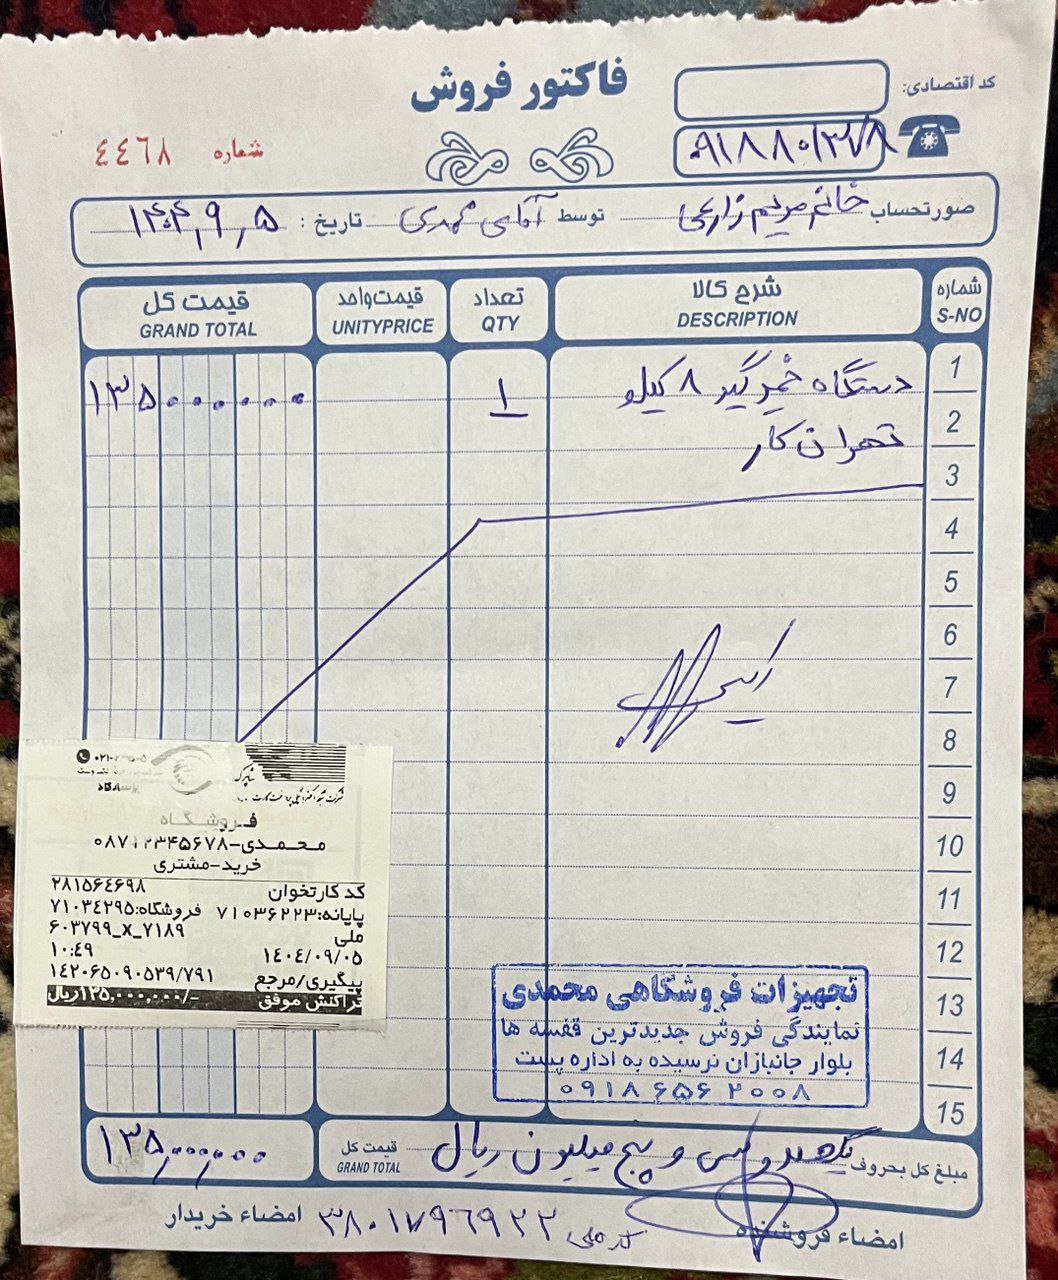 فاکتور فروش
کد اقتصادی:
شماره ٤٤٦٨
صورتحساب خانم مریم زارعی توسط آقای محمدی تاریخ: ۱۴۰۴٫۹٫۵
شماره شرح کالا تعداد قیمت واحد قیمت کل
S-NO DESCRIPTION QTY UNITYPRICE GRAND TOTAL
1
دستگاه خمیرگیر ۸ کیلو ۱ ۱۳۵۰۰۰۰۰۰
2
تهران کار
3
4
5
6
7
8
9
10
11
12
13
14
15
شاپرک
فروشگاه
محمدی-۰۸۷۱۲۳۴۵۶۷۸
خرید-مشتری
کد کارتخوان ۲۸۱۵۶۴۶۹۸
پایانه:۷۱۰۳۶۲۲۳ فروشگاه:۷۱۰۳۴۲۹۵
ملی ۶۰۳۷۹۹_X_۷۱۸۹
۱۴۰۴/۰۹/۰۵ ۱۰:۴۹
پیگیری/مرجع ۱۴۲۰۶۵۰۹۰۵۳۹/۷۹۱
تراکنش موفق ۱۳۵,۰۰۰,۰۰۰/-ریال
تجهیزات فروشگاهی محمدی
نمایندگی فروش جدیدترین قفسه ها
بلوار جانبازان نرسیده به اداره پست
۰۹۱۸ ۶۵۶ ۲۰۰۸
مبلغ کل بحروف یکصد و سی و پنج میلیون ریال قیمت کل ۱۳۵,۰۰۰,۰۰۰
GRAND TOTAL
امضاء فروشنده کد ملی ۳۸۰۱۷۹۶۹۲۲ امضاء خریدار